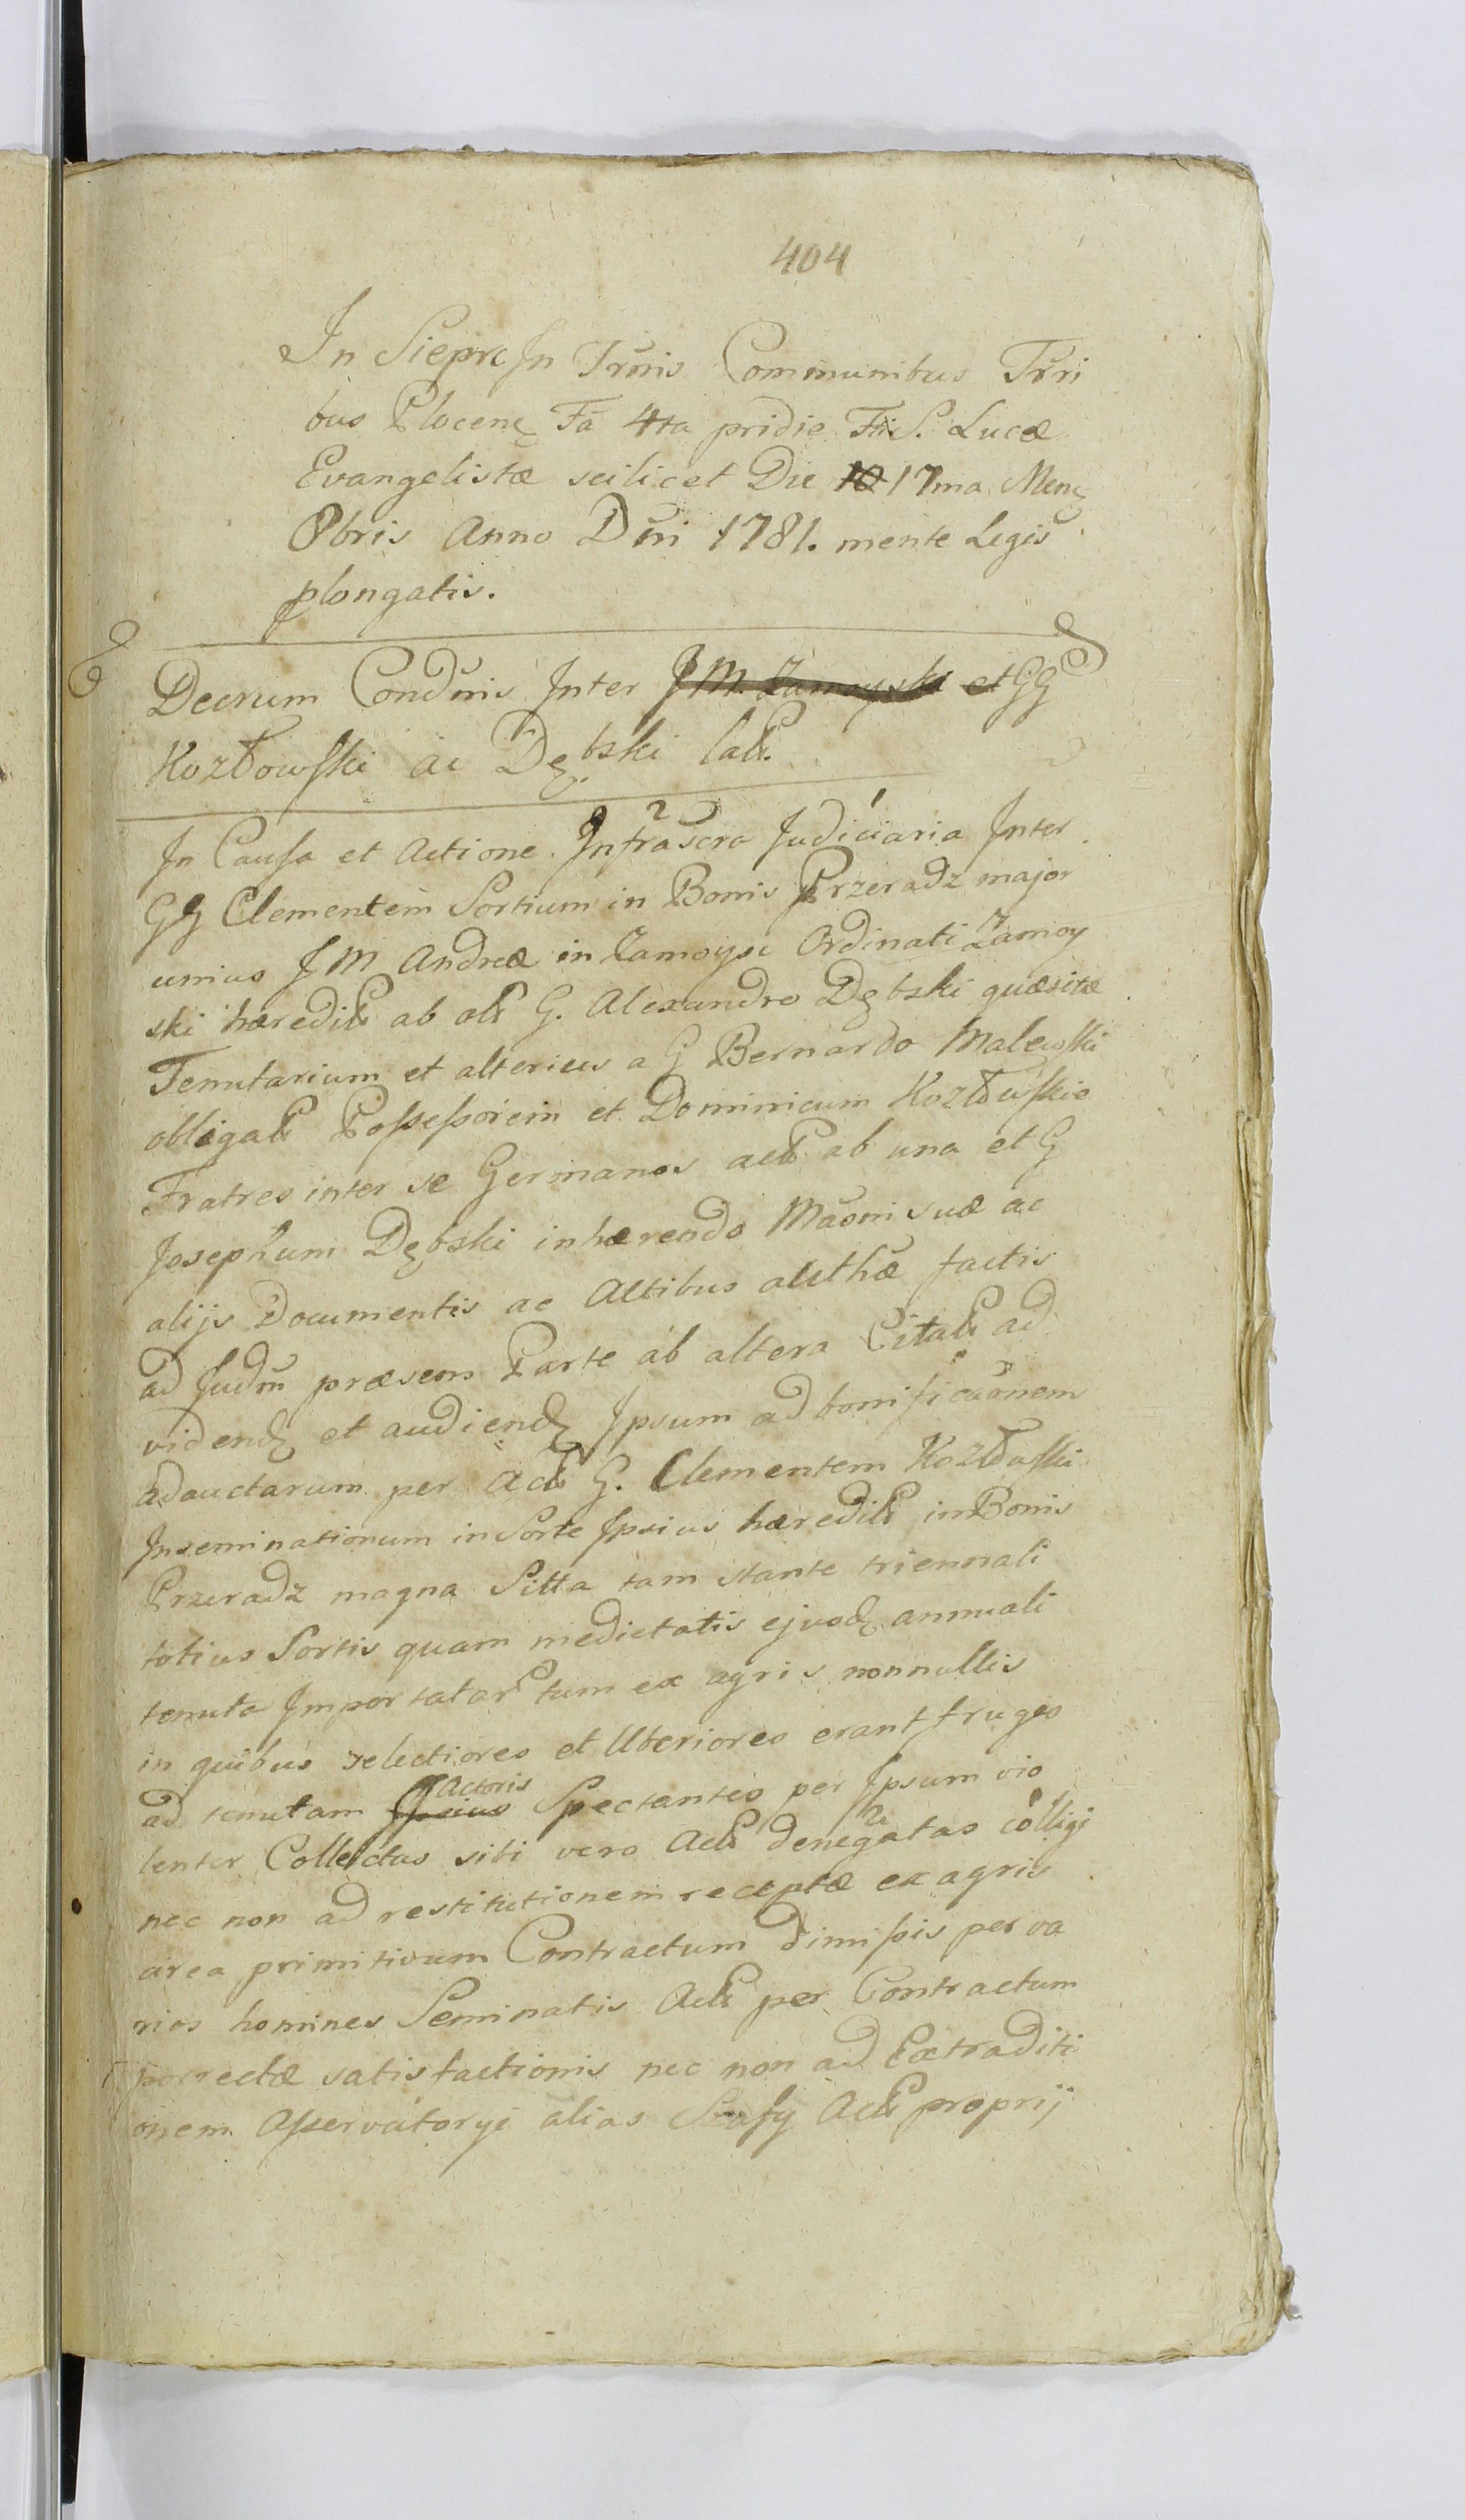 404
In Sieprc In Trnis Communibus Trri
bus Plocen Fa 4ta pridie Fti S. Lucæ
Evangelistæ scilicet Die 10 17ma Mens
8bris Anno Dni 1781. mente Legis
plongatis.
Decrum Condnis Inter J M. Zamoyski et GG
Kozłowski ac Dębski lat.
In Causa et Actione Infrascra Judiciaria Inter
GG Clementem Sortium in Bonis Przeradz major
unius J M Andreæ in Zamoysc Ordinati Zamoy
ski hæredit ab olt G. Alexandro Dębski quæsitæ
Tenutarium et alterius a G Bernardo Malewski
obligat Possessorem et Dominicum Kozłowskie
Fratres inter se Germanos act ab una et G
Josephum Dębski inhærendo Maoni suæ ac
alijs Documentis ac Actibus authæ factis
ad Judm præsens Parte ab altera Citat ad
videnđ et audienđ Ipsum ad bonificaonem
adauctarum per Act G. Clementem Kozłowski
Inseminationum in Sorte Ipsius hæredit in Bonis
Przeradz magna Sitta tam stante triennali
totius Sortis quam medietatis ejusđ annuali
tenuta Importatar tum ex agris nonnullis
in quibus selectiores et Uberiores erant fruges
ad tenutam Ipsius Actoris Spectantes per Ipsum vio
lenter Collectas sibi vero Act denegatas colligi
nec non ad restitutionem receptæ ex agris
area primitivum Contractum dimissis per va
rios homines Seminatis Act per Contractum
porrectæ satisfactionis nec non ad Extraditi
onem Asservatoryi alias Szafy Act proprij